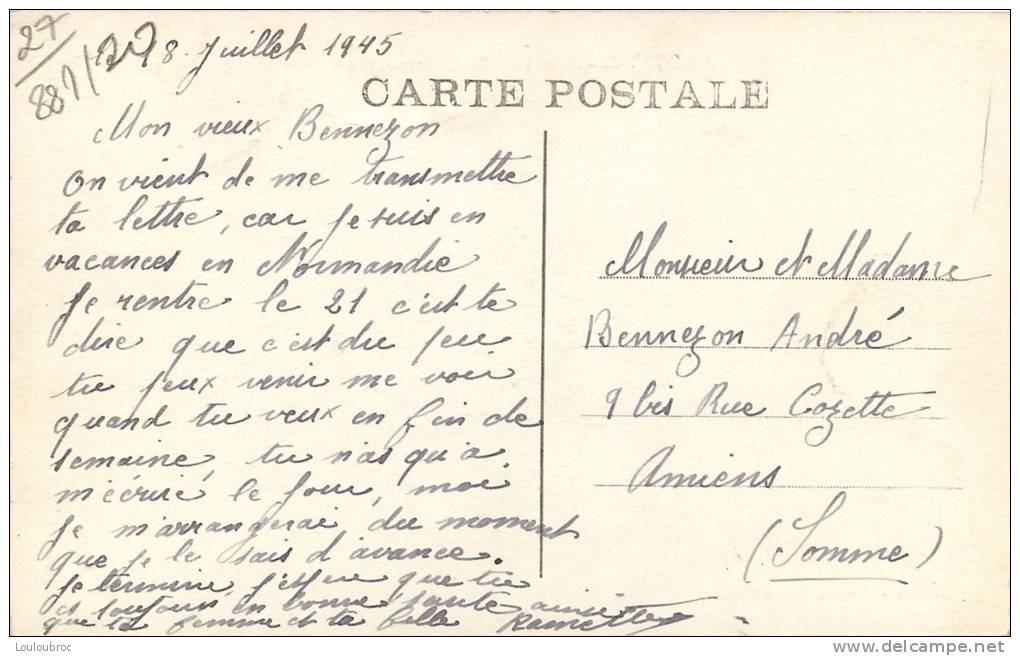 27
881/20
Le 18 Juillet 1945
CARTE POSTALE
Mon vieux Bennezon
On vient de me transmettre
ta lettre, car je suis en
vacances en Normandie
Je rentre le 21 c'est te
dire que c'est du peu
tu peux venir me voir
quand tu veux en fin de
semaine, tu n'as qu'à
m'écrire le jour, moi
je m'arrangerai du moment
que je le sais d'avance.
Je termine, j'espère que tu
es toujours en bonne santé ainsi
que ta femme et ta fille Ramette
Monsieur et Madame
Bennezon André
9 bis Rue Cozette
Amiens
(Somme)
Louloubroc
www.delcampe.net